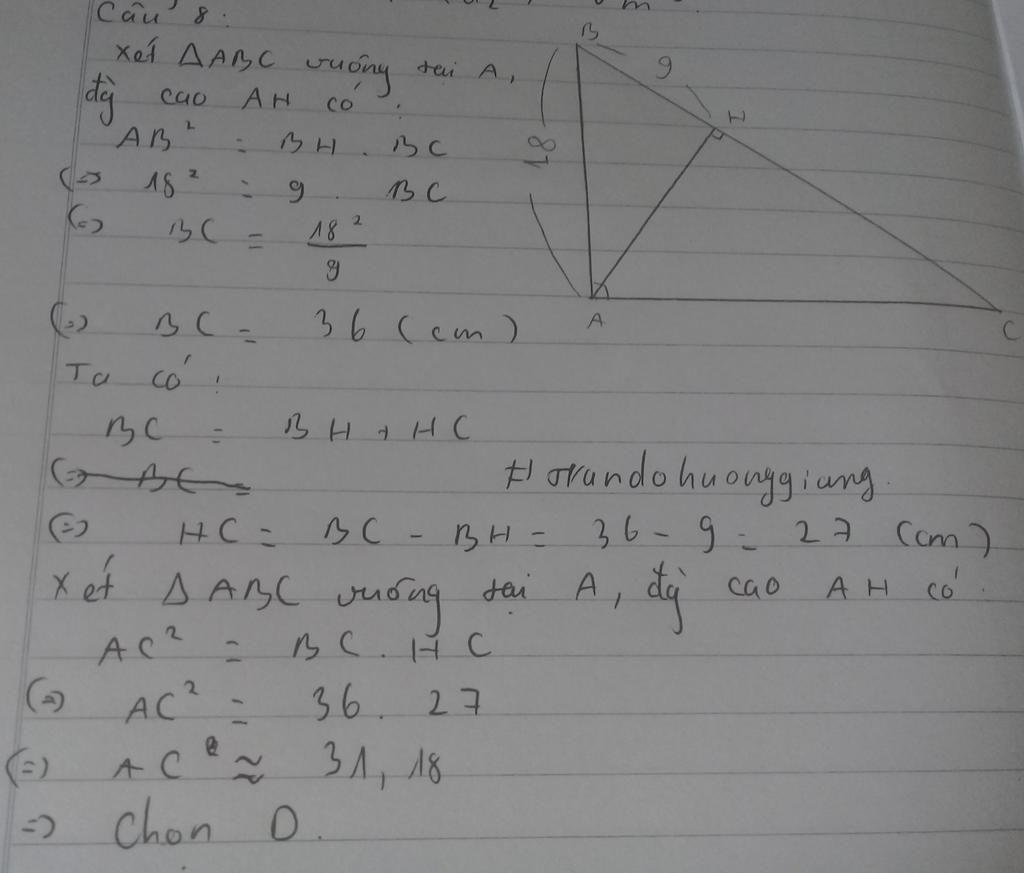 Câu 8:
Xét ΔABC vuông tại A,
đg cao AH có:
AB² = BH . BC
(=) 18² = 9 . BC
(=) BC = 18² / 9
(=) BC = 36 (cm)
Ta có:
BC = BH + HC
(=) BC =
#trandohuonggiang.
(=) HC = BC - BH = 36 - 9 = 27 (cm)
Xét ΔABC vuông tại A, đg cao AH có
AC² = BC . HC
(=) AC² = 36 . 27
(=) AC ≈ 31,18
=) Chọn D.
B
9
H
18
A
C